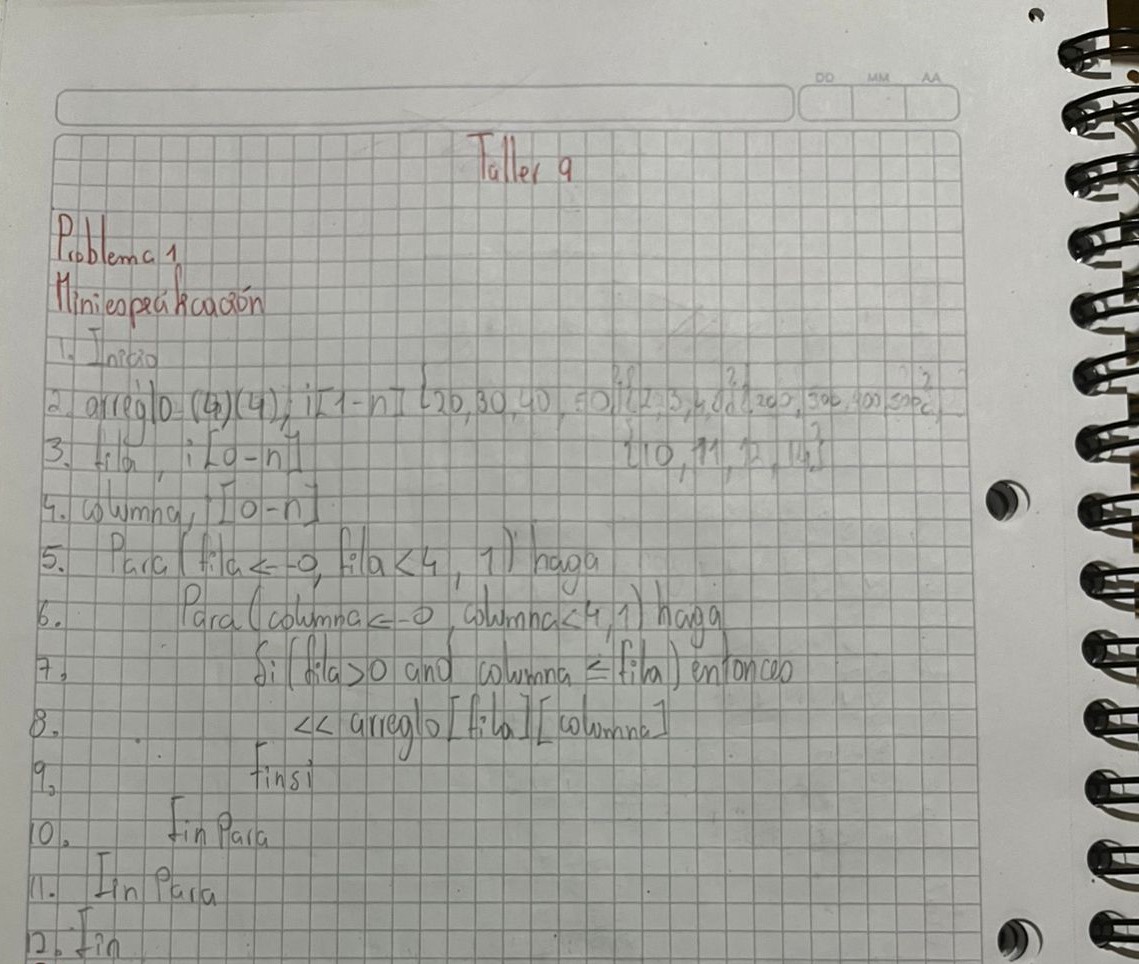 DD MM AA
Taller 9
Problema 1
Miniespecificación
1. Inicio
2. arreglo (4)(4), i[1-n] {20,30,40,50}{2,3,4,
3. fila, i[0-n] {10, 11, 12, 14}
4. columna, [0-n]
5. Para (fila <-0, fila<4, 1) haga
6. Para (columna <-0, columna<4,1) haga
7. Si (fila>0 and columna ≤ fila) entonces
8. << arreglo [fila][columna]
9. finsi
10. fin Para
11. Fin Para
12. Fin